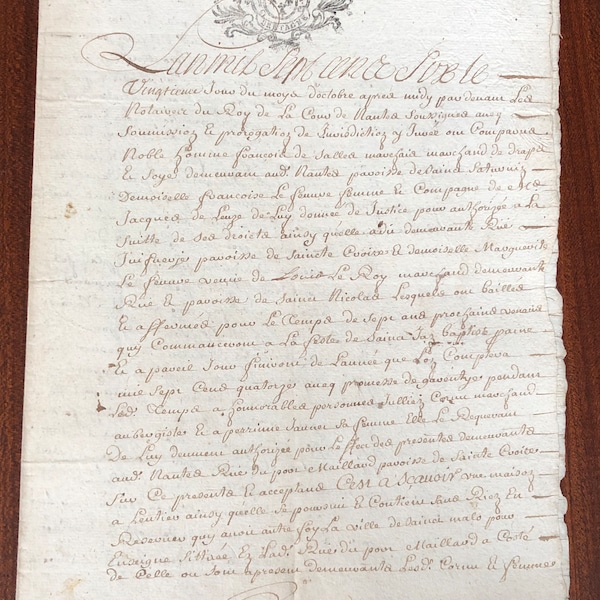 Lan mil Sept cens Six Le
Vingtieme Jour du moys doctobre apres midy par devant Les
Notaires du Roy de La Cour de Nantes soussignes avecq
soummission et prorogation de Jurisdiction y Juree ont Comparus
Noble homme francois de Salles marchand de draps
Et soye demeurant aud. Nantes paroisse de Saint Saturnin
Demoiselle francoise Le femme et Compagne de
Jacques de Luy de Justice pour authorizee a La
suitte de ses droicts ainsy quelle a dit demeurante Rue
paroisse de Saincte Croix et demoiselle Margueritte
Le veuve de Louis Le Roy marchand demeurante
Rue et paroisse de Sainct Nicolas Lesquels ont bailles
Et affermes pour Le Temps de Sept ans prochains venans
quy Commanceront a La feste de Saint Jan baptiste
Et a pareil Jour finiront de Lannee que Lon Comptera
mil Sept Cens quatorze avecq promesse de pendant
Led. Temps a honnorables personnes Jullien Cornu marchand
aubergiste et a perrinne sa femme Elle Le Requerant
De Luy deument authorizee pour Leffet des presentes demeurants
aud. Nantes Rue du port Maillard paroisse de Sainte Croix
Sur Ce presents et acceptans Cest a Scavoir une maison
a Lentier ainsy quelle se poursuit et Contient sans Rien En
Reserver quy avoit autre foy La ville de Saint malo pour
Enseigne sittuee En Lad. Rue du port Maillard a Coste
de Celle ou sont apresent demeurants Lesd. Cornu et femme